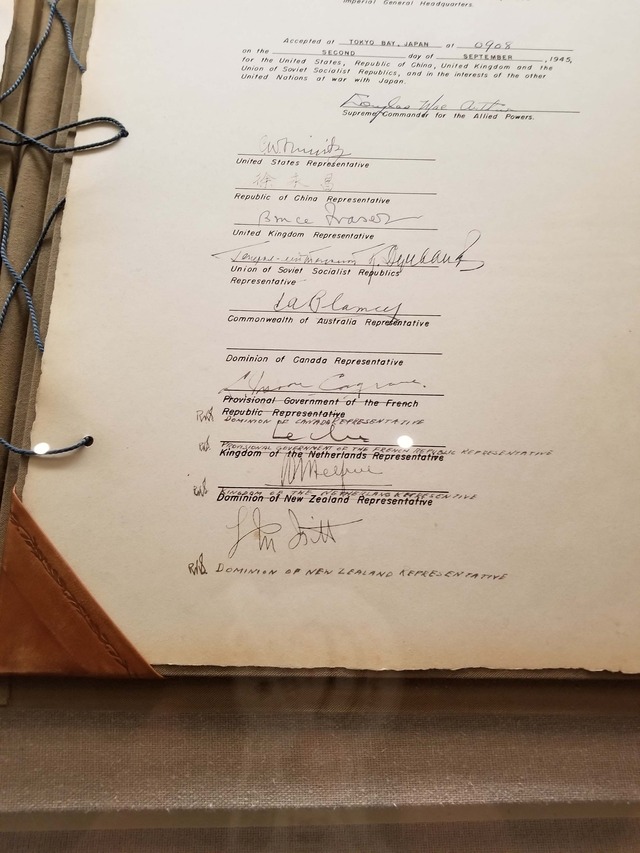 Imperial General Headquarters.
Accepted at TOKYO BAY, JAPAN at 0908
on the SECOND day of SEPTEMBER, 1945,
for the United States, Republic of China, United Kingdom and the
Union of Soviet Socialist Republics, and in the interests of the other
United Nations at war with Japan.
Douglas MacArthur
Supreme Commander for the Allied Powers.
CW Nimitz
United States Representative
徐永昌
Republic of China Representative
Bruce Fraser
United Kingdom Representative
Union of Soviet Socialist Republics
Representative
T A Blamey
Commonwealth of Australia Representative
Dominion of Canada Representative
L. Moore Cosgrave.
Provisional Government of the French
Republic Representative
DOMINION OF CANADA REPRESENTATIVE
Le Clerc
PROVISIONAL GOVERNMENT OF THE FRENCH REPUBLIC REPRESENTATIVE
Kingdom of the Netherlands Representative
Helfrich
KINGDOM OF THE NETHERLAND REPRESENTATIVE
Dominion of New Zealand Representative
L M Isitt
DOMINION OF NEW ZEALAND REPRESENTATIVE